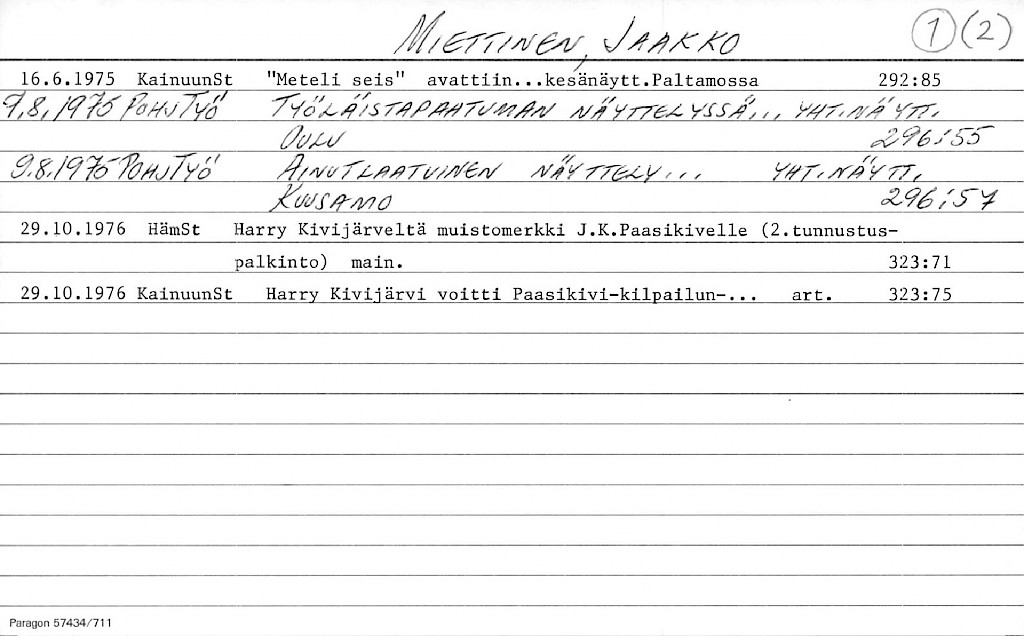 MIETTINEN, JAAKKO 1 (2)
16.6.1975 KainuunSt "Meteli seis" avattiin...kesänäytt.Paltamossa 292:85
9.8.1975 POHJTYÖ TYÖLÄISTAPAHTUMAN NÄYTTELYSSÄ... YHT.NÄYTT.
OULU 296:55
9.8.1975 POHJTYÖ AINUTLAATUINEN NÄYTTELY... YHT.NÄYTT.
KUUSAMO 296:57
29.10.1976 HämSt Harry Kivijärveltä muistomerkki J.K.Paasikivelle (2.tunnustus-
palkinto) main. 323:71
29.10.1976 KainuunSt Harry Kivijärvi voitti Paasikivi-kilpailun-... art. 323:75
Paragon 57434/711